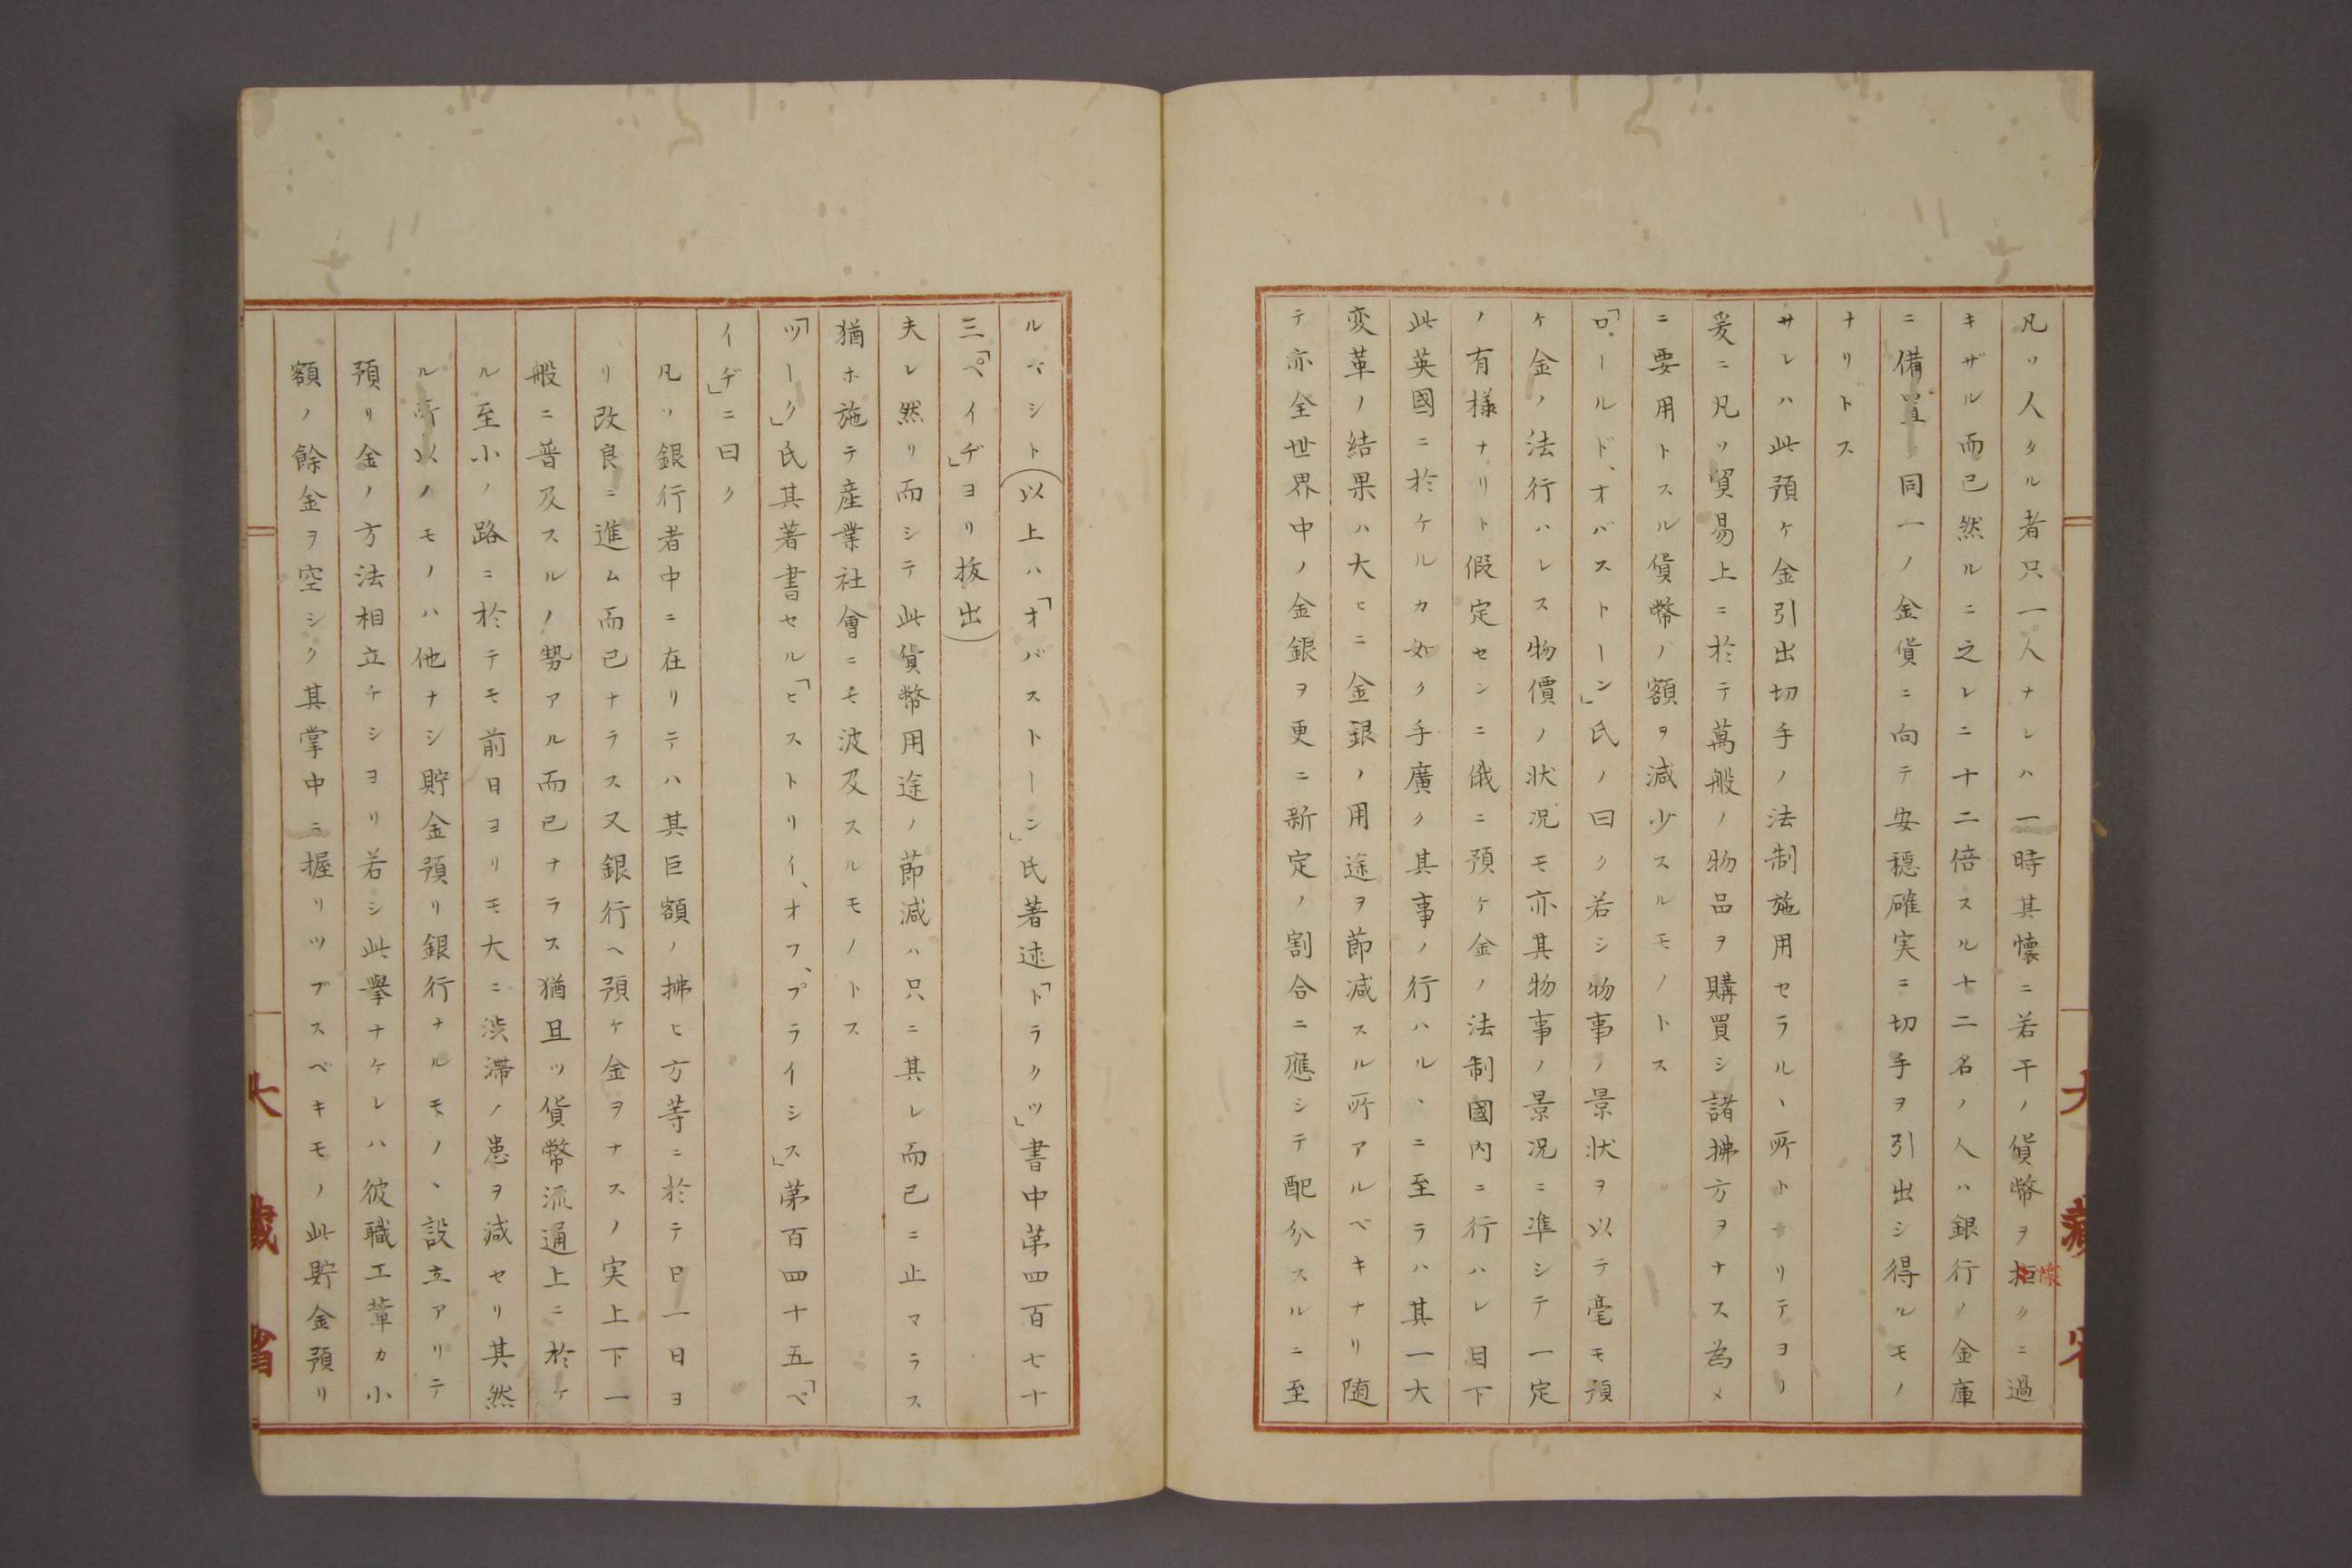 凡ソ人タル者只一人ナレハ一時其懐ニ若干ノ貨幣ヲ拒クニ過
キザル而已然ルニ之レニ十二倍スル十二名ノ人ハ銀行ノ金庫
ニ備置ク同一ノ金貨ニ向テ安穏確実ニ切手ヲ引出シ得ルモノ
ナリトス
サレハ此預ケ金引出切手ノ法制施用セラルヽ所トナリテヨリ
爰ニ凡ソ貿易上ニ於テ萬般ノ物品ヲ購買シ諸拂方ヲナス為メ
ニ要用トスル貨幣ノ額ヲ減少スルモノトス
「ロールド、オバストーン」氏ノ曰ク若シ物事ノ景状ヲ以テ毫モ預
ケ金ノ法行ハレス物價ノ状况モ亦其物事ノ景况ニ準シテ一定
ノ有様ナリト假定センニ俄ニ預ケ金ノ法制國内ニ行ハレ目下
此英國ニ於ケルカ如ク手廣ク其事ノ行ハルヽニ至ラハ其一大
変革ノ結果ハ大ヒニ金銀ノ用途ヲ節減スル所アルベキナリ随
テ亦全世界中ノ金銀ヲ更ニ新定ノ割合ニ應シテ配分スルニ至
大藏省
ルベシト(以上ハ「オバストーン」氏著述「トラクツ」書中第四百七十
三「ペイヂ」ヨリ抜出)
夫レ然リ而シテ此貨幣用途ノ節減ハ只ニ其レ而已ニ止マラス
猶ホ施テ産業社會ニモ波及スルモノトス
「ツーク」氏其著書セル「ヒストリイ、オフ、プライシス」第百四十五「ペ
イヂ」ニ曰ク
凡ソ銀行者中ニ在リテハ其巨額ノ拂ヒ方等ニ於テ日一日ヨ
リ改良ニ進ム而已ナラス又銀行ヘ預ケ金ヲナスノ実上下一
般ニ普及スルノ勢アル而已ナラス猶且ツ貨幣流通上ニ於ケ
ル至小ノ路ニ於テモ前日ヨリモ大ニ渋滞ノ患ヲ減セリ其然
ル所以ノモノハ他ナシ貯金預リ銀行ナルモノヽ設立アリテ
預リ金ノ方法相立チシヨリ若シ此擧ナケレハ彼職工輩カ小
額ノ餘金ヲ空シク其掌中ニ握リツブスベキモノ此貯金預リ
大藏省